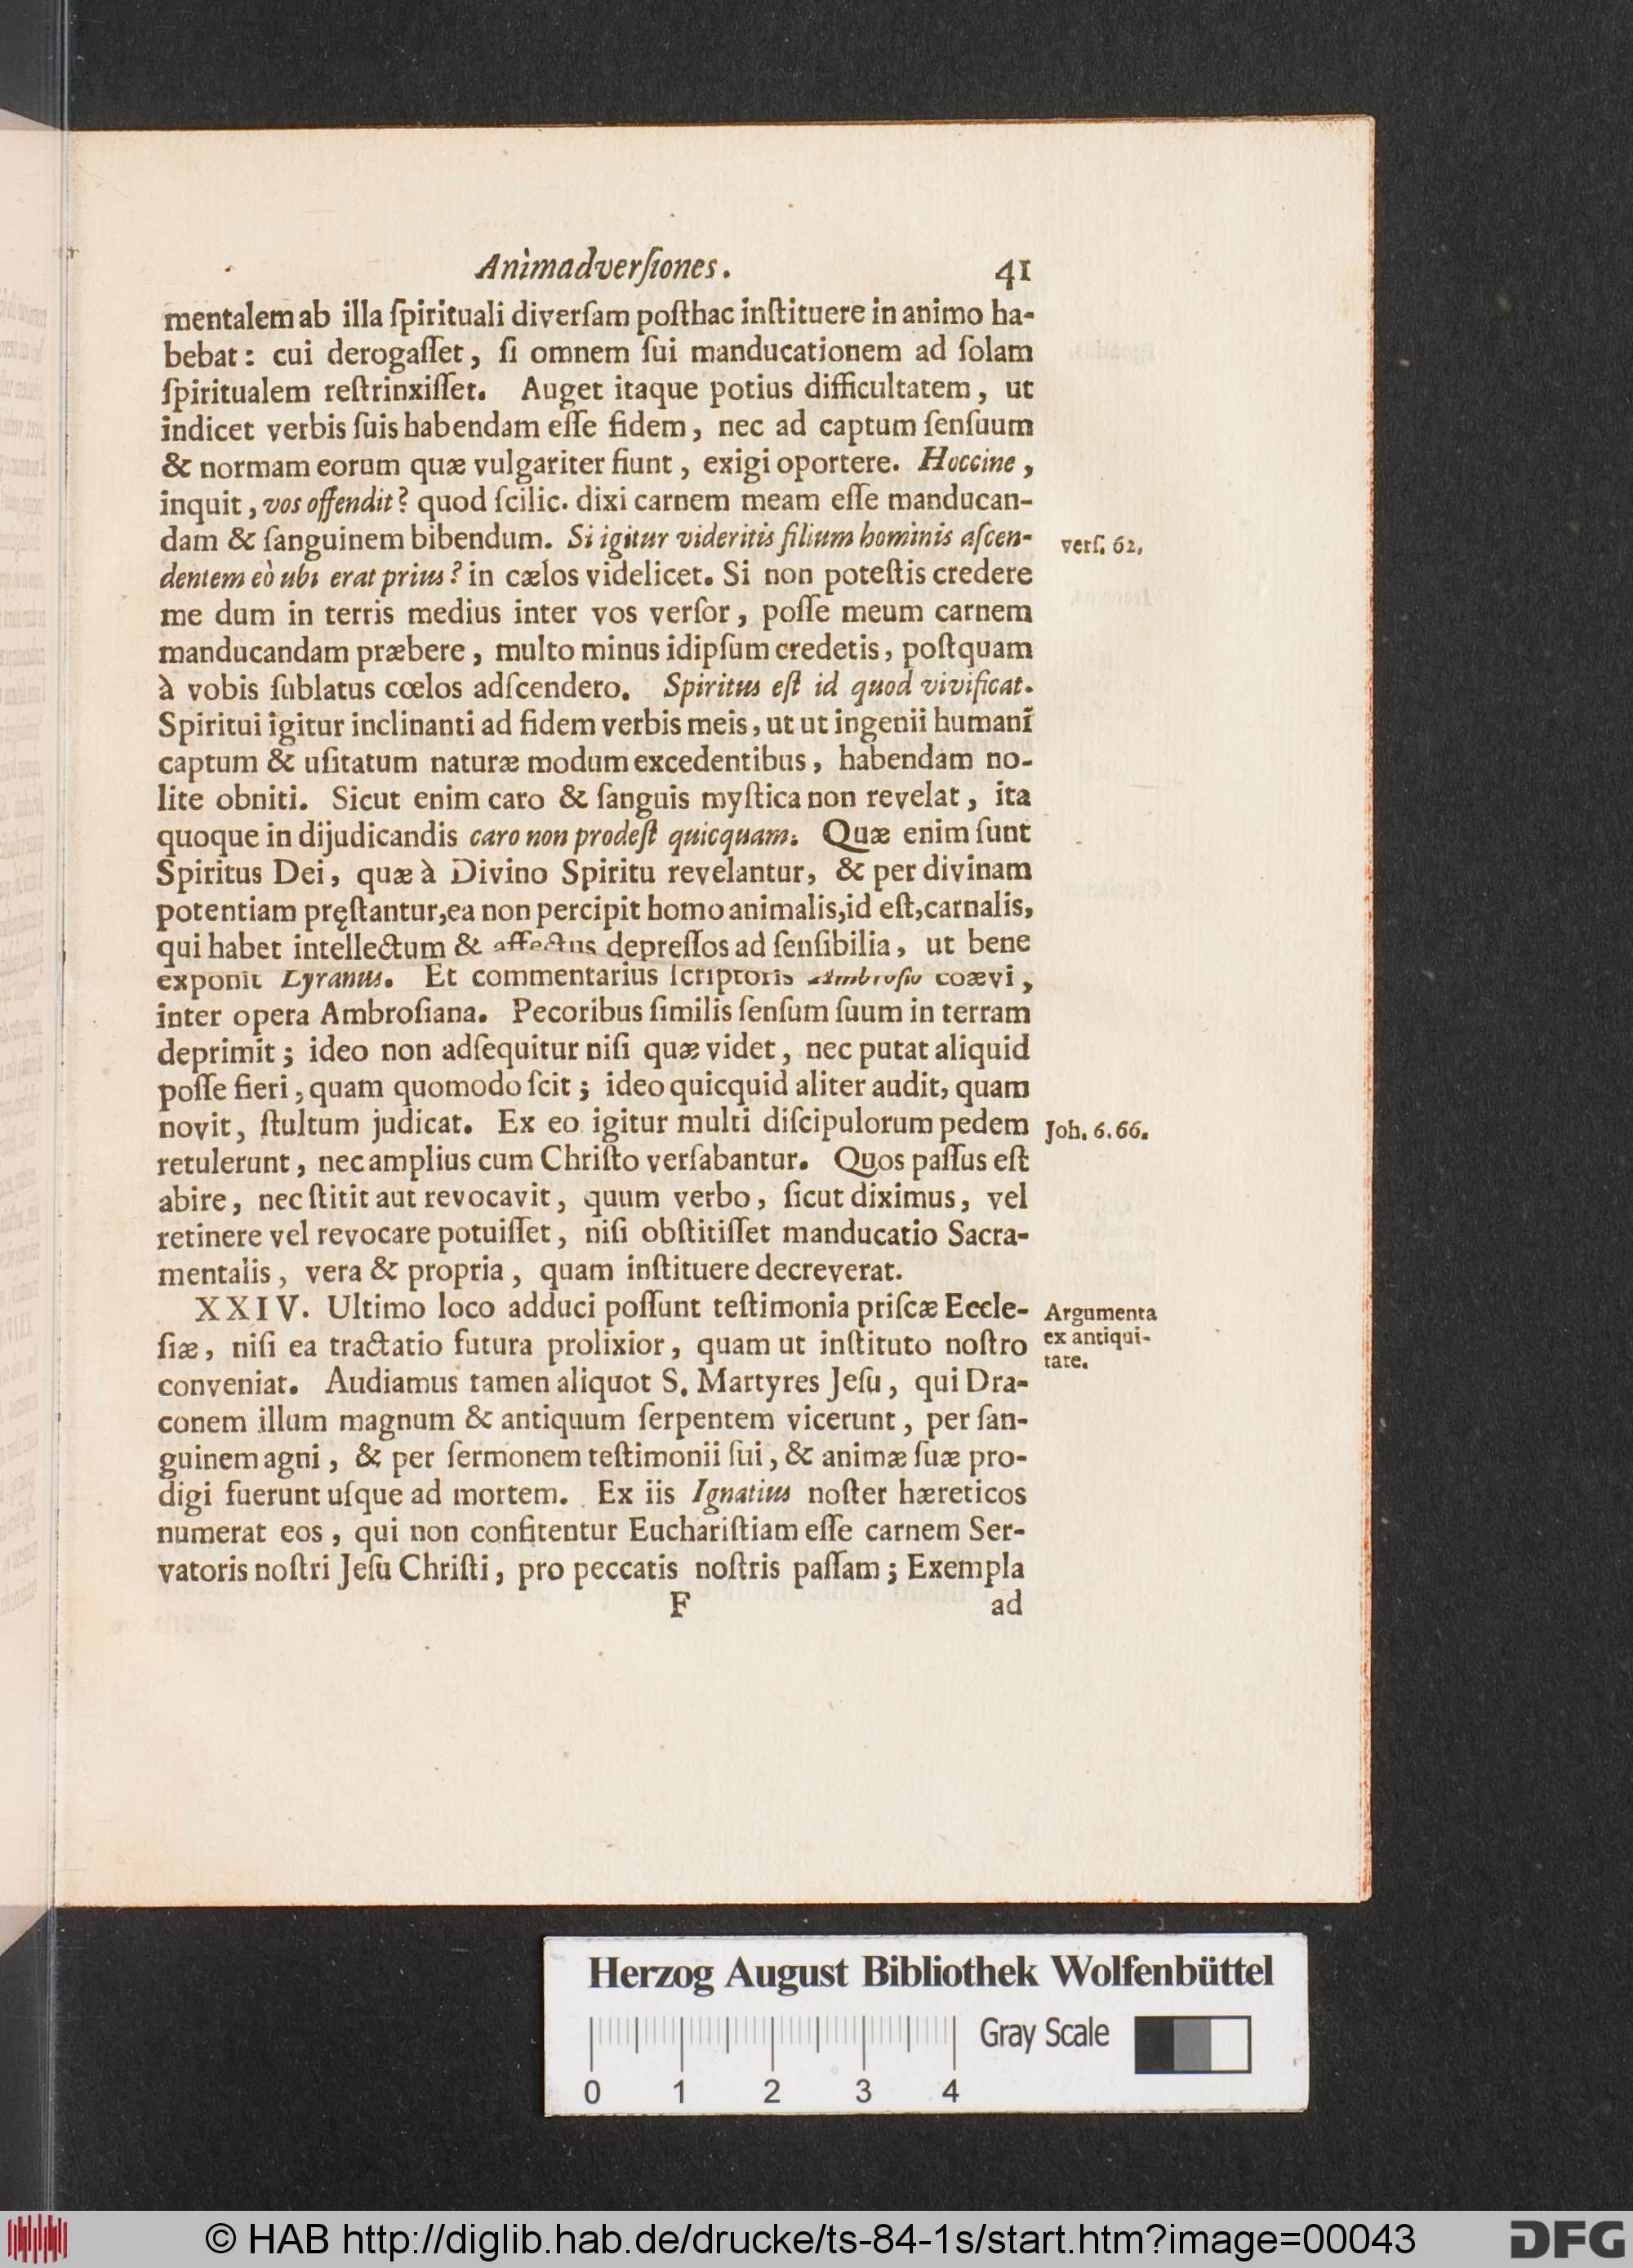 Animadverſiones. 41
mentalem ab illa ſpirituali diverſam poſthac inſtituere in animo ha-
bebat: cui derogaſſet, ſi omnem ſui manducationem ad ſolam
ſpiritualem reſtrinxiſſet. Auget itaque potius difficultatem, ut
indicet verbis ſuis habendam eſſe fidem, nec ad captum ſenſuum
& normam eorum quæ vulgariter fiunt, exigi oportere. Hoccine,
inquit, vos offendit? quod ſcilic. dixi carnem meam eſſe manducan-
dam & ſanguinem bibendum. Si igitur videritis filium hominis aſcen-
verſ. 62.
dentem eò ubi erat prius? in cælos videlicet. Si non poteſtis credere
me dum in terris medius inter vos verſor, poſſe meum carnem
manducandam præbere, multo minus idipſum credetis, poſtquam
à vobis ſublatus cœlos adſcendero. Spiritus eſt id quod vivificat.
Spiritui igitur inclinanti ad fidem verbis meis, ut ut ingenii humani
captum & uſitatum naturæ modum excedentibus, habendam no-
lite obniti. Sicut enim caro & ſanguis myſtica non revelat, ita
quoque in dijudicandis caro non prodeſt quicquam. Quæ enim ſunt
Spiritus Dei, quæ à Divino Spiritu revelantur, & per divinam
potentiam pręſtantur, ea non percipit homo animalis, id eſt, carnalis,
qui habet intellectum & affectus depreſſos ad ſenſibilia, ut bene
exponit Lyranus. Et commentarius ſcriptoris Ambroſio coævi,
inter opera Ambroſiana. Pecoribus ſimilis ſenſum ſuum in terram
deprimit; ideo non adſequitur niſi quæ videt, nec putat aliquid
poſſe fieri, quam quomodo ſcit; ideo quicquid aliter audit, quam
novit, ſtultum judicat. Ex eo igitur multi diſcipulorum pedem
Joh. 6. 66.
retulerunt, nec amplius cum Chriſto verſabantur. Quos paſſus eſt
abire, nec ſtitit aut revocavit, quum verbo, ſicut diximus, vel
retinere vel revocare potuiſſet, niſi obſtitiſſet manducatio Sacra-
mentalis, vera & propria, quam inſtituere decreverat.
XXIV. Ultimo loco adduci poſſunt teſtimonia priſcæ Eccle-
Argumenta
ex antiqui-
tate.
ſiæ, niſi ea tractatio futura prolixior, quam ut inſtituto noſtro
conveniat. Audiamus tamen aliquot S. Martyres Jeſu, qui Dra-
conem illum magnum & antiquum ſerpentem vicerunt, per ſan-
guinem agni, & per ſermonem teſtimonii ſui, & animæ ſuæ pro-
digi fuerunt uſque ad mortem. Ex iis Ignatius noſter hæreticos
numerat eos, qui non confitentur Euchariſtiam eſſe carnem Ser-
vatoris noſtri Jeſu Chriſti, pro peccatis noſtris paſſam; Exempla
F ad
Herzog August Bibliothek Wolfenbüttel
Gray Scale
0 1 2 3 4
© HAB http://diglib.hab.de/drucke/ts-84-1s/start.htm?image=00043
DFG